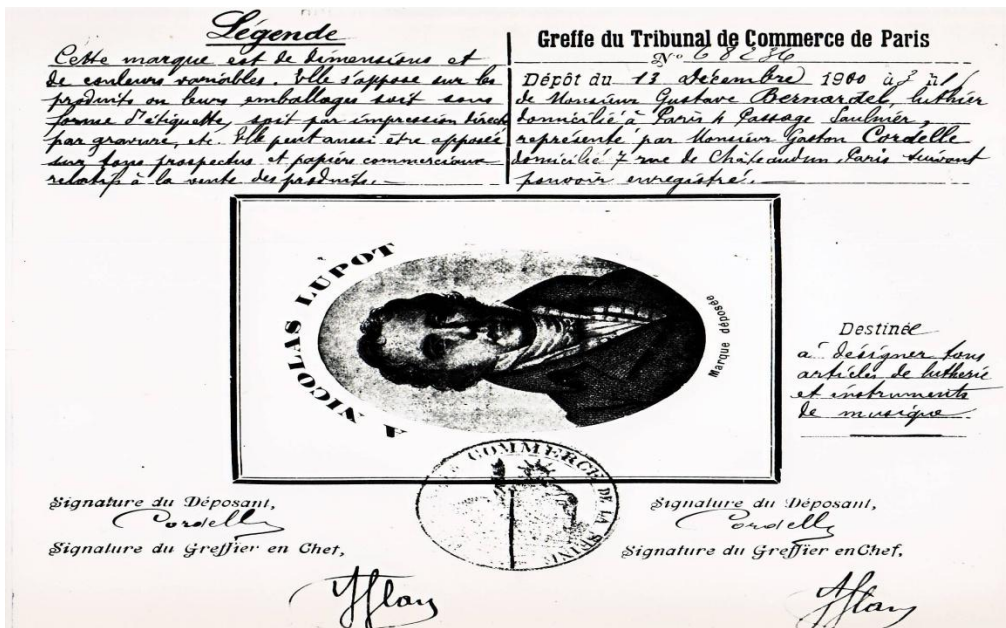 Légende
Cette marque est de dimensions et
de couleurs variables. Elle s'appose sur les
produits ou leurs emballages soit sous
forme d'étiquette, soit par impression directe
par gravure, etc. Elle peut aussi être apposée
sur tous prospectus et papiers commerciaux
relatifs à la vente des produits.
Greffe du Tribunal de Commerce de Paris
No 68236
Dépôt du 13 Décembre 1900 à 3 h
de Monsieur Gustave Bernardel, luthier
domicilié à Paris 4 Passage Saulnier,
représenté par Monsieur Gaston Cordelle
domicilié 7 rue de Châteaudun, Paris suivant
pouvoir enregistré.
A NICOLAS LUPOT
Marque déposée
Destinée
à désigner tous
articles de lutherie
et instruments
de musique
COMMERCE DE LA SEINE
Signature du Déposant,
Cordelle
Signature du Greffier en Chef,
Signature du Déposant,
Cordelle
Signature du Greffier en Chef,